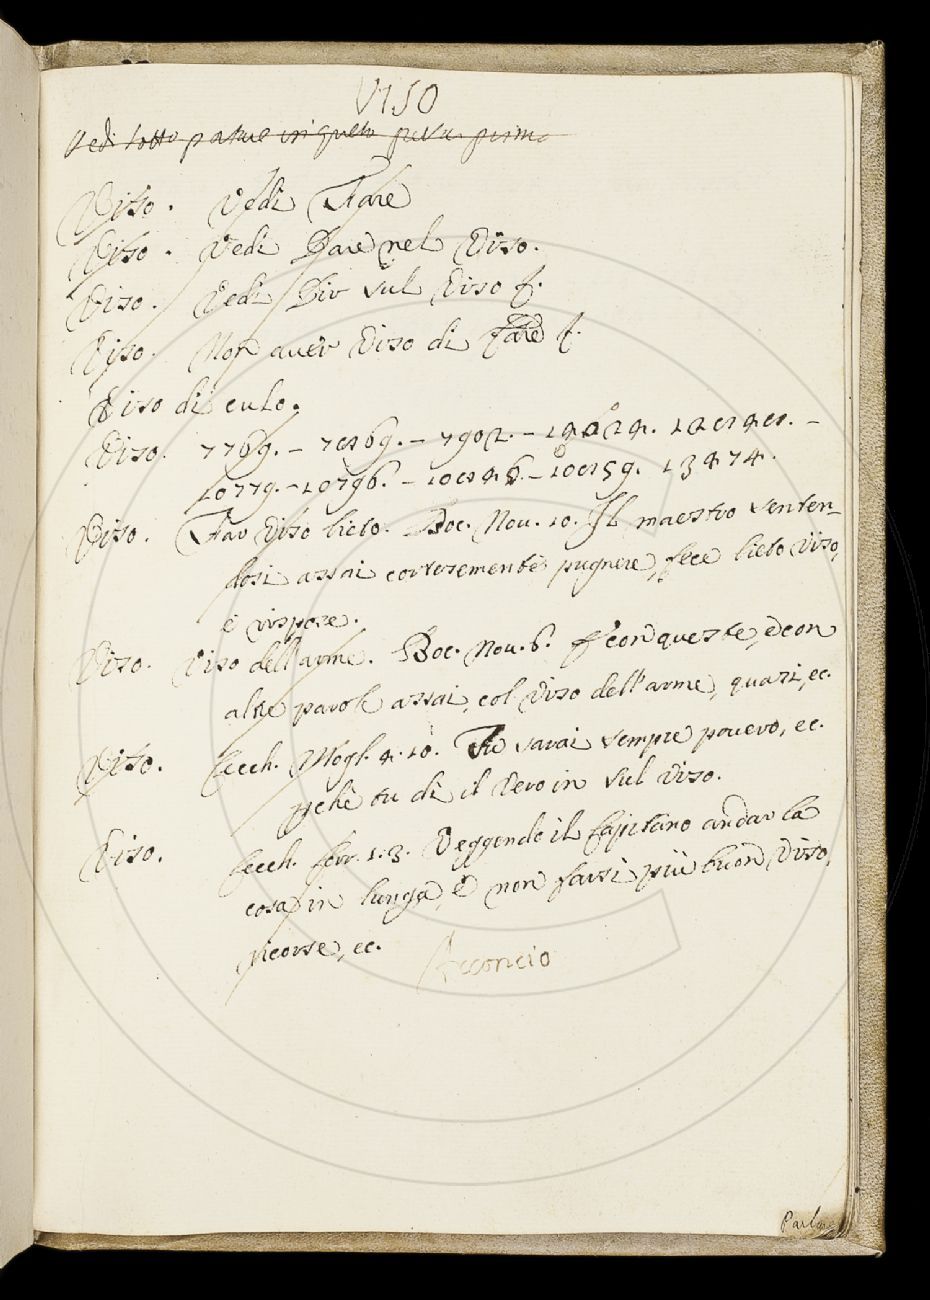 VISO
Vedi sotto
Viso. Vedi Fare
Viso. Vedi Dare nel Viso.
Viso. Vedi Dir sul Viso f.
Viso. Non aver Viso di fare f.
Viso di culo.
Viso. 7769. – – 7902. –
10779. – 10796. – 13474.
Viso. Far Viso lieto. Boc. Nov. 10. Il maestro senten–
dosi assai cortesemente pugnere, fece lieto viso,
e rispose.
Viso. Viso dell'arme. Boc. Nov. 6. f con queste, e con
altre parole assai, col viso dell'arme, quasi, ec.
Viso. Cecch. Mogl. 4. 10. Tu sarai sempre povero, ec.
pchè tu di il Vero in sul viso.
Viso. Cecch. Serv. 1. 3. Veggendo il Capitano andar la
cosa in lunga, e non farsi più buon Viso,
ricorse, ec.
Acconcio